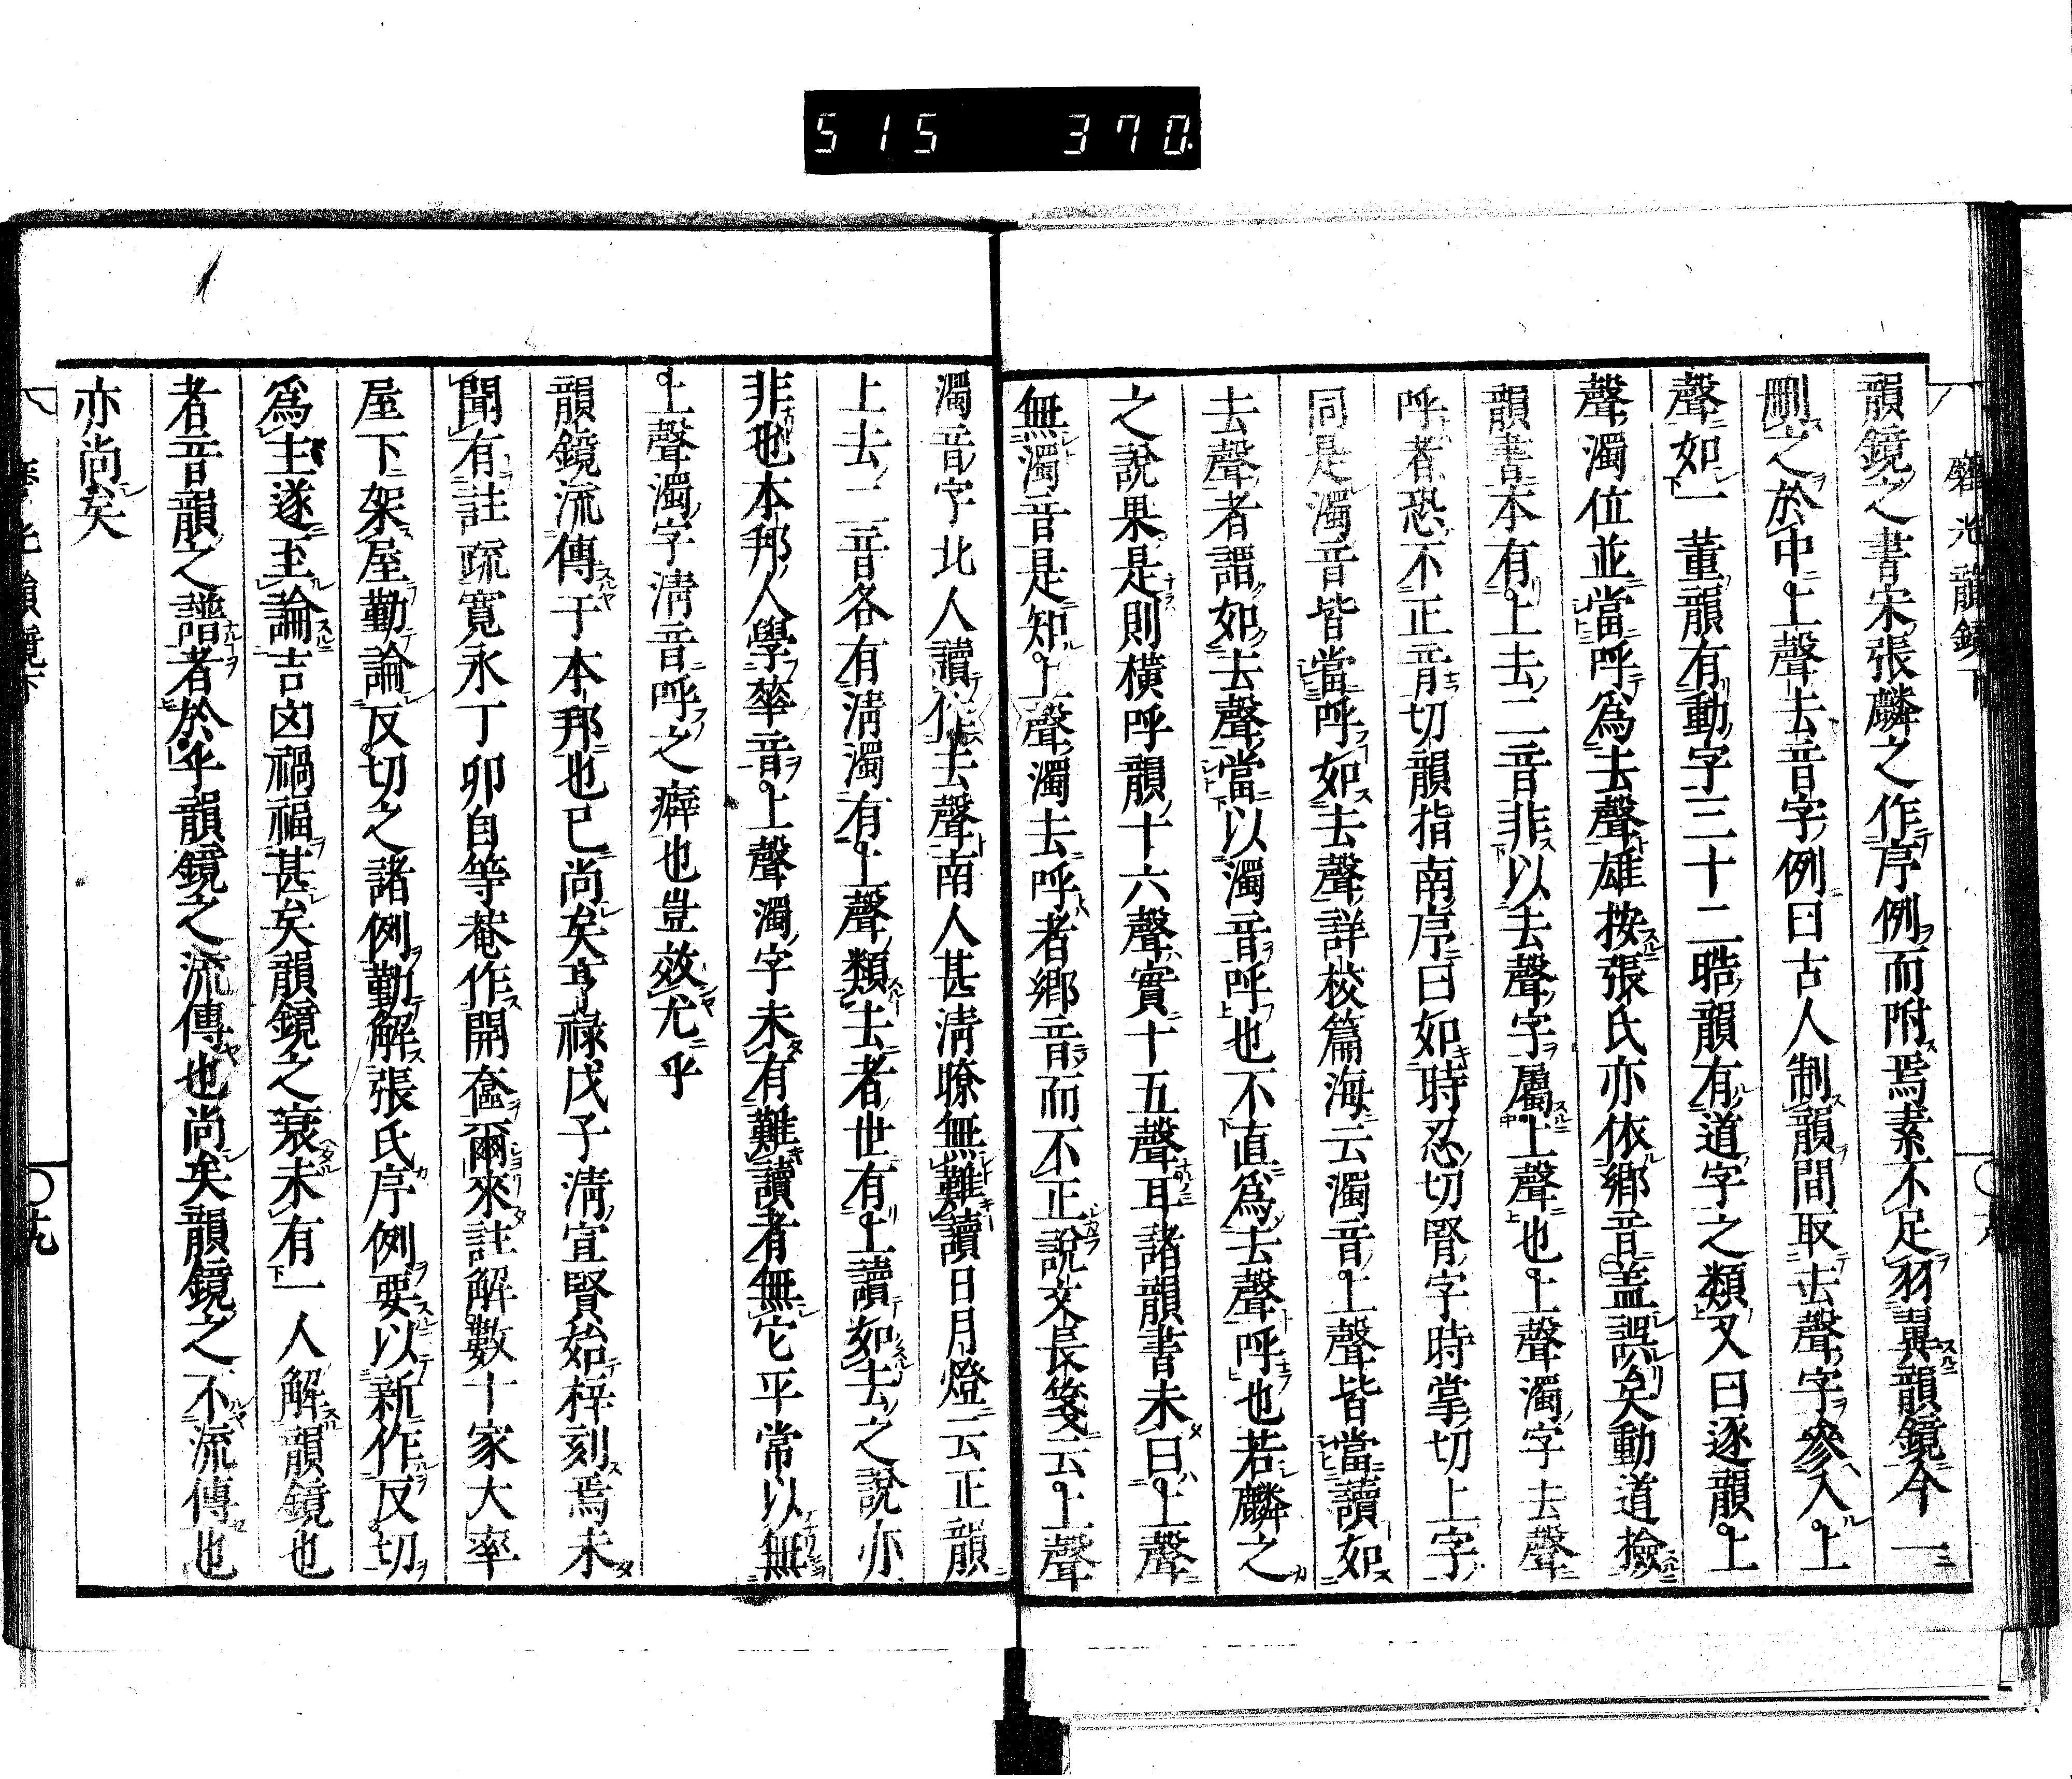 515 370.
磨光韻鏡下
韻鏡之書宋張麟之作序例而附焉素不足羽翼韻鏡今一
刪之於中上聲去音字例曰古人制韻間取去聲字參入上
聲如一董韻有動字三十二晧韻有道字之類又曰逐韻上
聲濁位並當呼爲去聲雄按張氏亦依鄉音蓋誤矣動道撿
韻書本有上去二音非以去聲字屬上聲也上聲濁字去聲
呼者恐不正音切韻指南序曰如時忍切腎字時掌切上字
同是濁音皆當呼如去聲詳校篇海云濁音上聲皆當讀如
去聲者謂如去聲當以濁音呼也不直爲去聲呼也若麟之
之說果是則橫呼韻十六聲實十五聲耳諸韻書未曰上聲
無濁音是知上聲濁去呼者鄉音而不正說文長箋云上聲
濁音字北人讀作去聲南人甚清瞭無難讀日月燈云正韻
上去二音各有清濁有上聲類去者世有上讀如去之說亦
非也本邦人學華音上聲濁字未有難讀者無它平常以無
上聲濁字清音呼之癖也豈效尤乎
韻鏡流傳于本邦也已尚矣亨祿戊子清宣賢始梓刻焉未
聞有註疏寬永丁卯自等菴作開奩爾來註解數十家大率
屋下架屋勤論反切之諸例勤解張氏序例要以新作反切
爲主遂至論吉凶禍福甚矣韻鏡之衰未有一人解韻鏡也
者音韻之譜者於乎韻鏡之流傳也尚矣韻鏡之不流傳也
亦尚矣